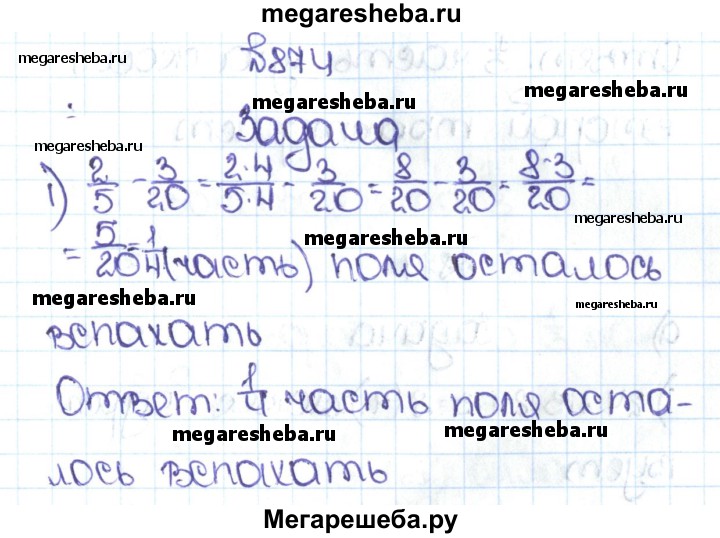 megaresheba.ru
megaresheba.ru
№874
megaresheba.ru
megaresheba.ru
Задача
megaresheba.ru
1) 2/5 - 3/20 = 2·4/5·4 - 3/20 = 8/20 - 3/20 = 8-3/20 =
megaresheba.ru
megaresheba.ru
= 5/20 = 1/4 (часть) поля осталось
megaresheba.ru
megaresheba.ru
вспахать
Ответ: 1/4 часть поля оста-
megaresheba.ru
megaresheba.ru
лось вспахать
Мегарешеба.ру